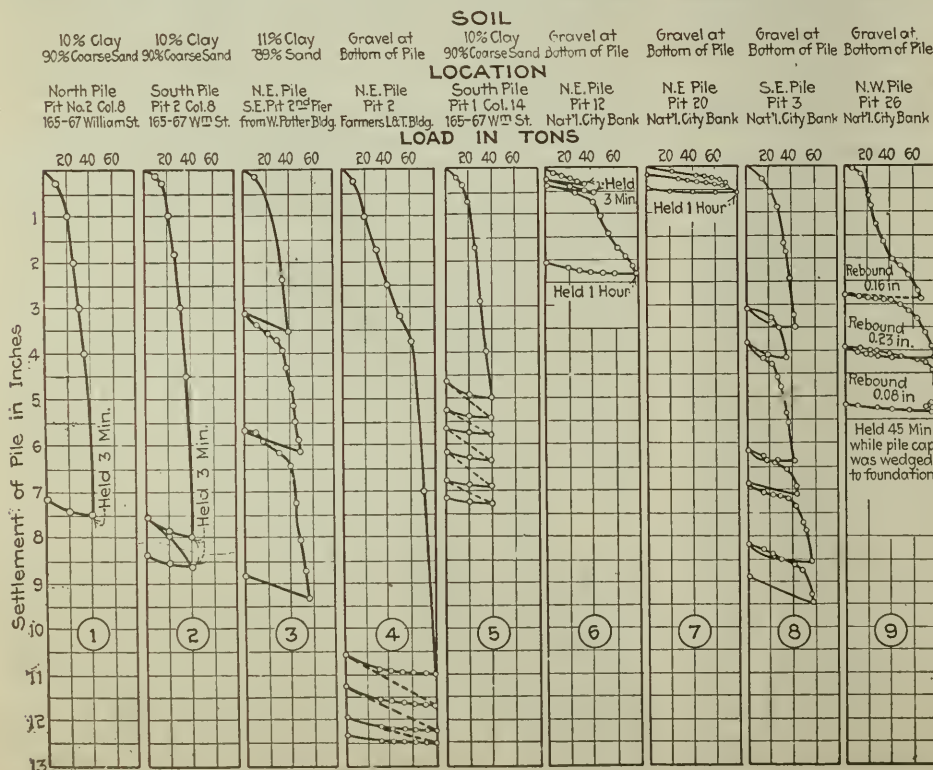 SOIL
10% Clay
90% Coarse Sand
10% Clay
90% Coarse Sand
11% Clay
89% Sand
Gravel at
Bottom of Pile
10% Clay
90% Coarse Sand
Gravel at
Bottom of Pile
Gravel at
Bottom of Pile
Gravel at
Bottom of Pile
Gravel at
Bottom of Pile
LOCATION
North Pile
Pit No.2 Col.8
165-67 William St.
South Pile
Pit 2 Col.8
165-67 Wm St.
N.E. Pile
S.E. Pit 2nd Pier
from W. Potter Bldg.
N.E. Pile
Pit 2
Farmers L&T. Bldg.
South Pile
Pit 1 Col. 14
165-67 Wm St.
N.E. Pile
Pit 12
Nat'l. City Bank
N.E Pile
Pit 20
Nat'l. City Bank
S.E. Pile
Pit 3
Nat'l. City Bank
N.W. Pile
Pit 26
Nat'l. City Bank
LOAD IN TONS
20 40 60 20 40 60 20 40 60 20 40 60 20 40 60 20 40 60 20 40 60 20 40 60 20 40 60
Settlement of Pile in Inches
1
2
3
4
5
6
7
8
9
10
11
12
13
Held 3 Min.
Held 3 Min.
Held
3 Min.
Held 1 Hour
Held 1 Hour
Rebound
0.16 in
Rebound
0.23 in.
Rebound
0.08 in
Held 45 Min
while pile cap
was wedged
to foundation
1 2 3 4 5 6 7 8 9